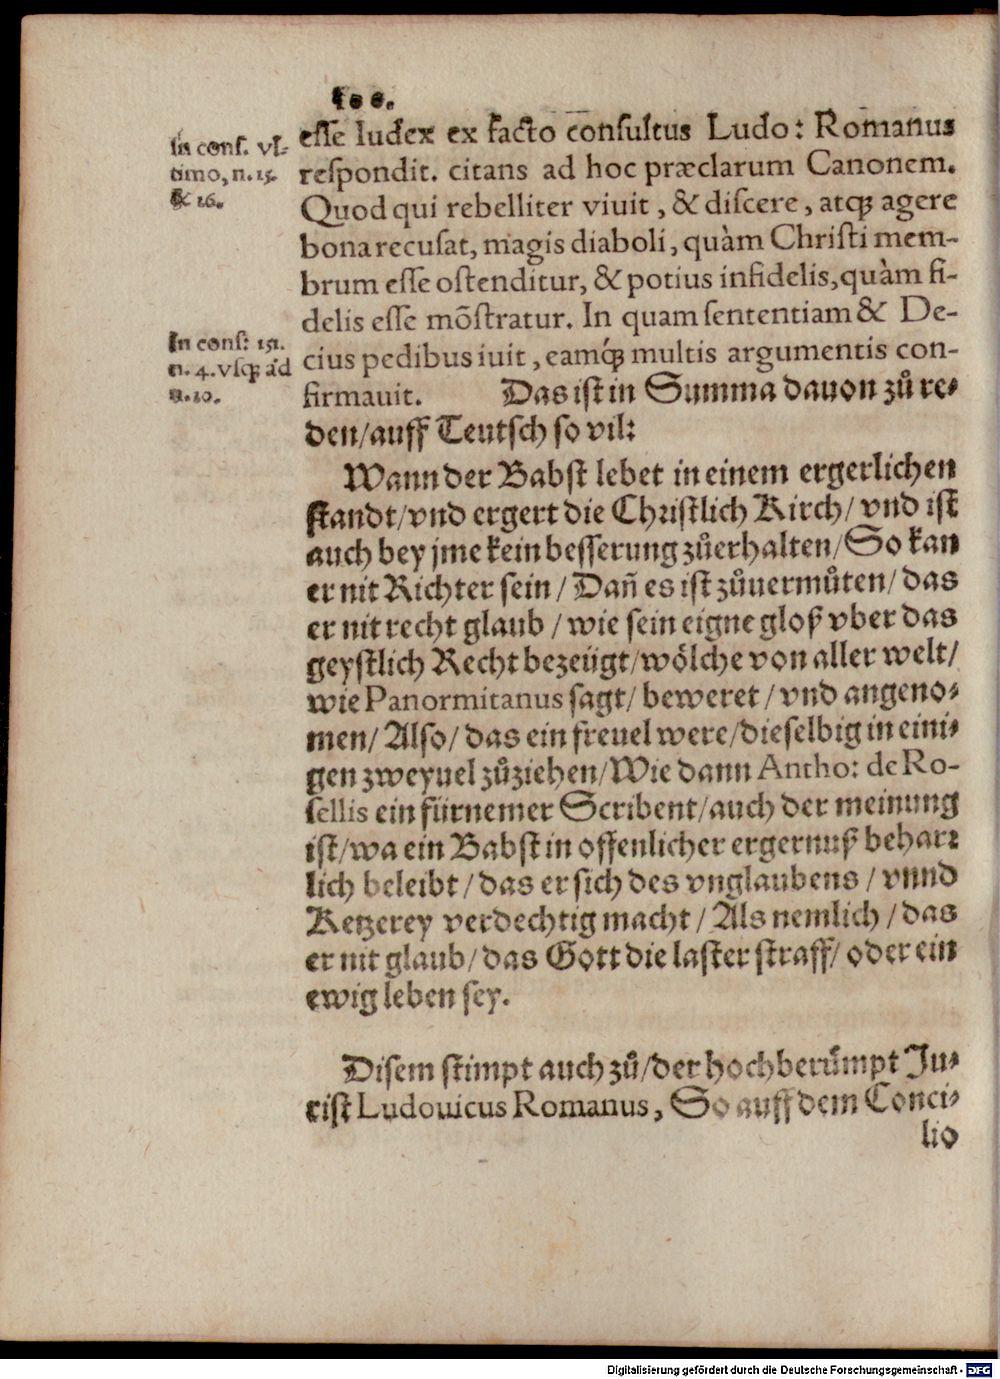 100.
esse Iudex ex facto consultus Ludo: Romanus
In cons. vl-
timo, n. 15.
& 16.
respondit. citans ad hoc præclarum Canonem.
Quod qui rebelliter viuit, & discere, atq; agere
bona recusat, magis diaboli, quàm Christi mem-
brum esse ostenditur, & potius infidelis, quàm fi-
delis esse mõstratur. In quam sententiam & De-
In cons: 151.
n. 4. vsq; ad
n. 10.
cius pedibus iuit, eamq́; multis argumentis con-
firmauit. Das ist in Summa dauon zů re-
den/auff Teutsch so vil:
Wann der Babst lebet in einem ergerlichen
standt/vnd ergert die Christlich Kirch/vnd ist
auch bey jme kein besserung zůerhalten/So kan
er nit Richter sein/Dañ es ist zůuermůten/das
er nit recht glaub/wie sein eigne gloß vber das
geystlich Recht bezeügt/wölche von aller welt/
wie Panormitanus sagt/beweret/vnd angeno-
men/Also/das ein freuel were/dieselbig in eini-
gen zweyuel zůziehen/Wie dann Antho: de Ro-
sellis ein fürnemer Scribent/auch der meinung
ist/wa ein Babst in offenlicher ergernuß behar-
lich beleibt/das er sich des vnglaubens/vnnd
Ketzerey verdechtig macht/Als nemlich/das
er nit glaub/das Gott die laster straff/oder ein
ewig leben sey.
Disem stimpt auch zů/der hochberůmpt Ju-
rist Ludouicus Romanus, So auff dem Conci-
lio
Digitalisierung gefördert durch die Deutsche Forschungsgemeinschaft - DFG